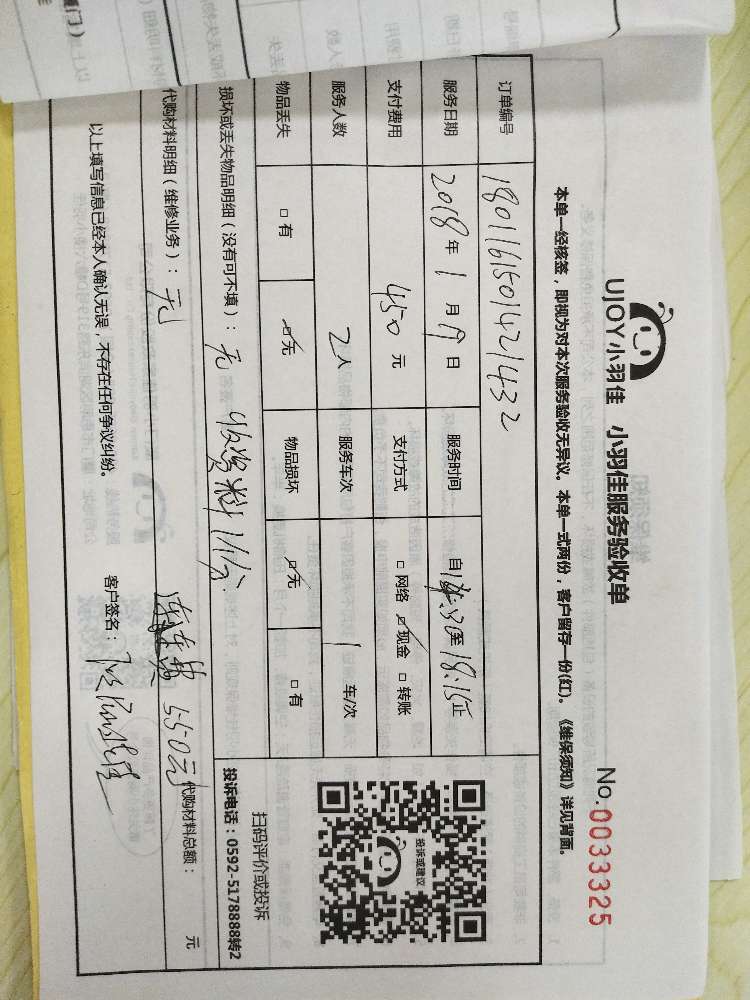 UJOY小羽佳 小羽佳服务验收单
No.0033325
本单一经核签，即视为对本次服务验收无异议。本单一式两份，客户留存一份(红)。《维保须知》详见背面。
订单编号 1801161501421432
服务日期 2018年1月19日 服务时间 自14:30至18:15止
支付费用 450元 支付方式 □网络 ☑现金 □转账
服务人数 2人 服务车次 1车/次
物品丢失 □有 ☑无 物品损坏 ☑无 □有
损坏或丢失物品明细（没有可不填）：无 收资料1份
代购材料明细（维修业务）：无 550元 代购材料总额： 元
以上填写信息已经本人确认无误，不存在任何争议纠纷。 客户签名：
投诉或建议
扫码评价或投诉
投诉电话：0592-5178888转2